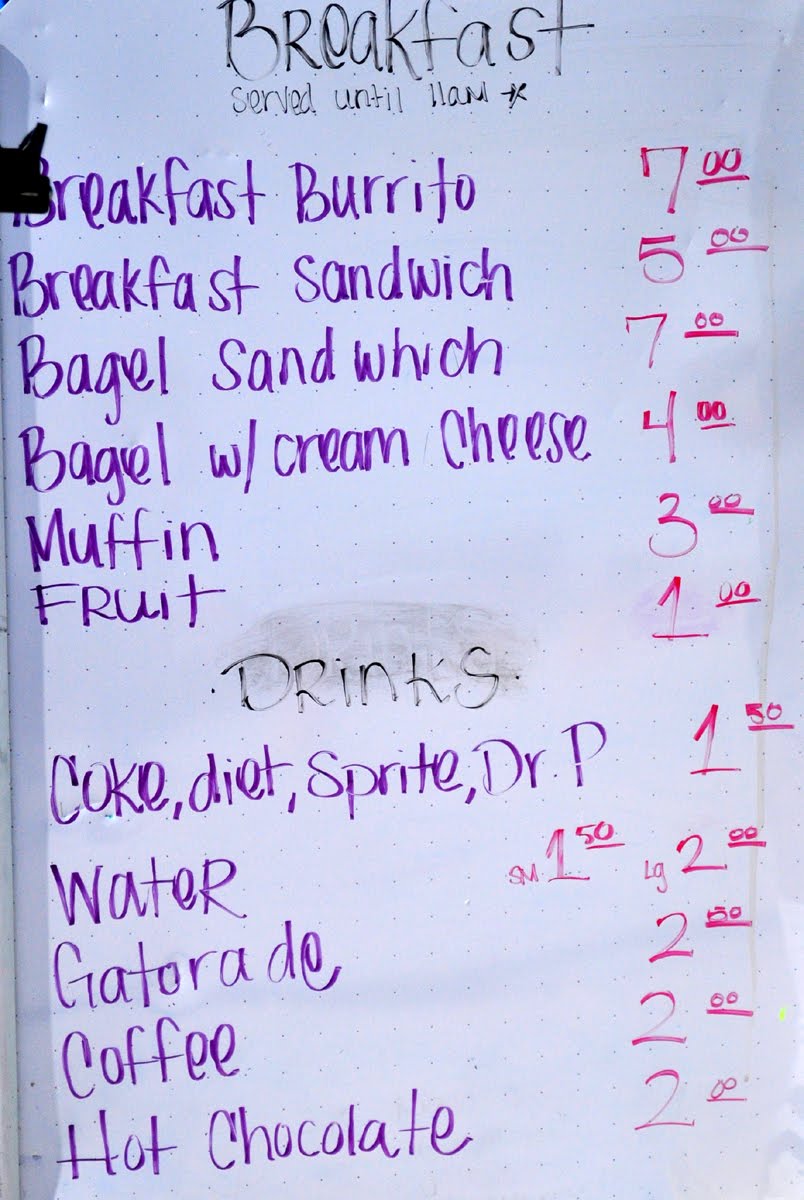 Breakfast
served until 11am *
Breakfast Burrito 7 00
Breakfast Sandwich 5 00
Bagel Sandwhich 7 00
Bagel w/ cream Cheese 4 00
Muffin 3 00
FRuit 1 00
DRinks
Coke, diet, Sprite, Dr. P 1 50
WateR SM 1 50 Lg 2 00
Gatorade 2 50
Coffee 2 00
Hot Chocolate 2 00